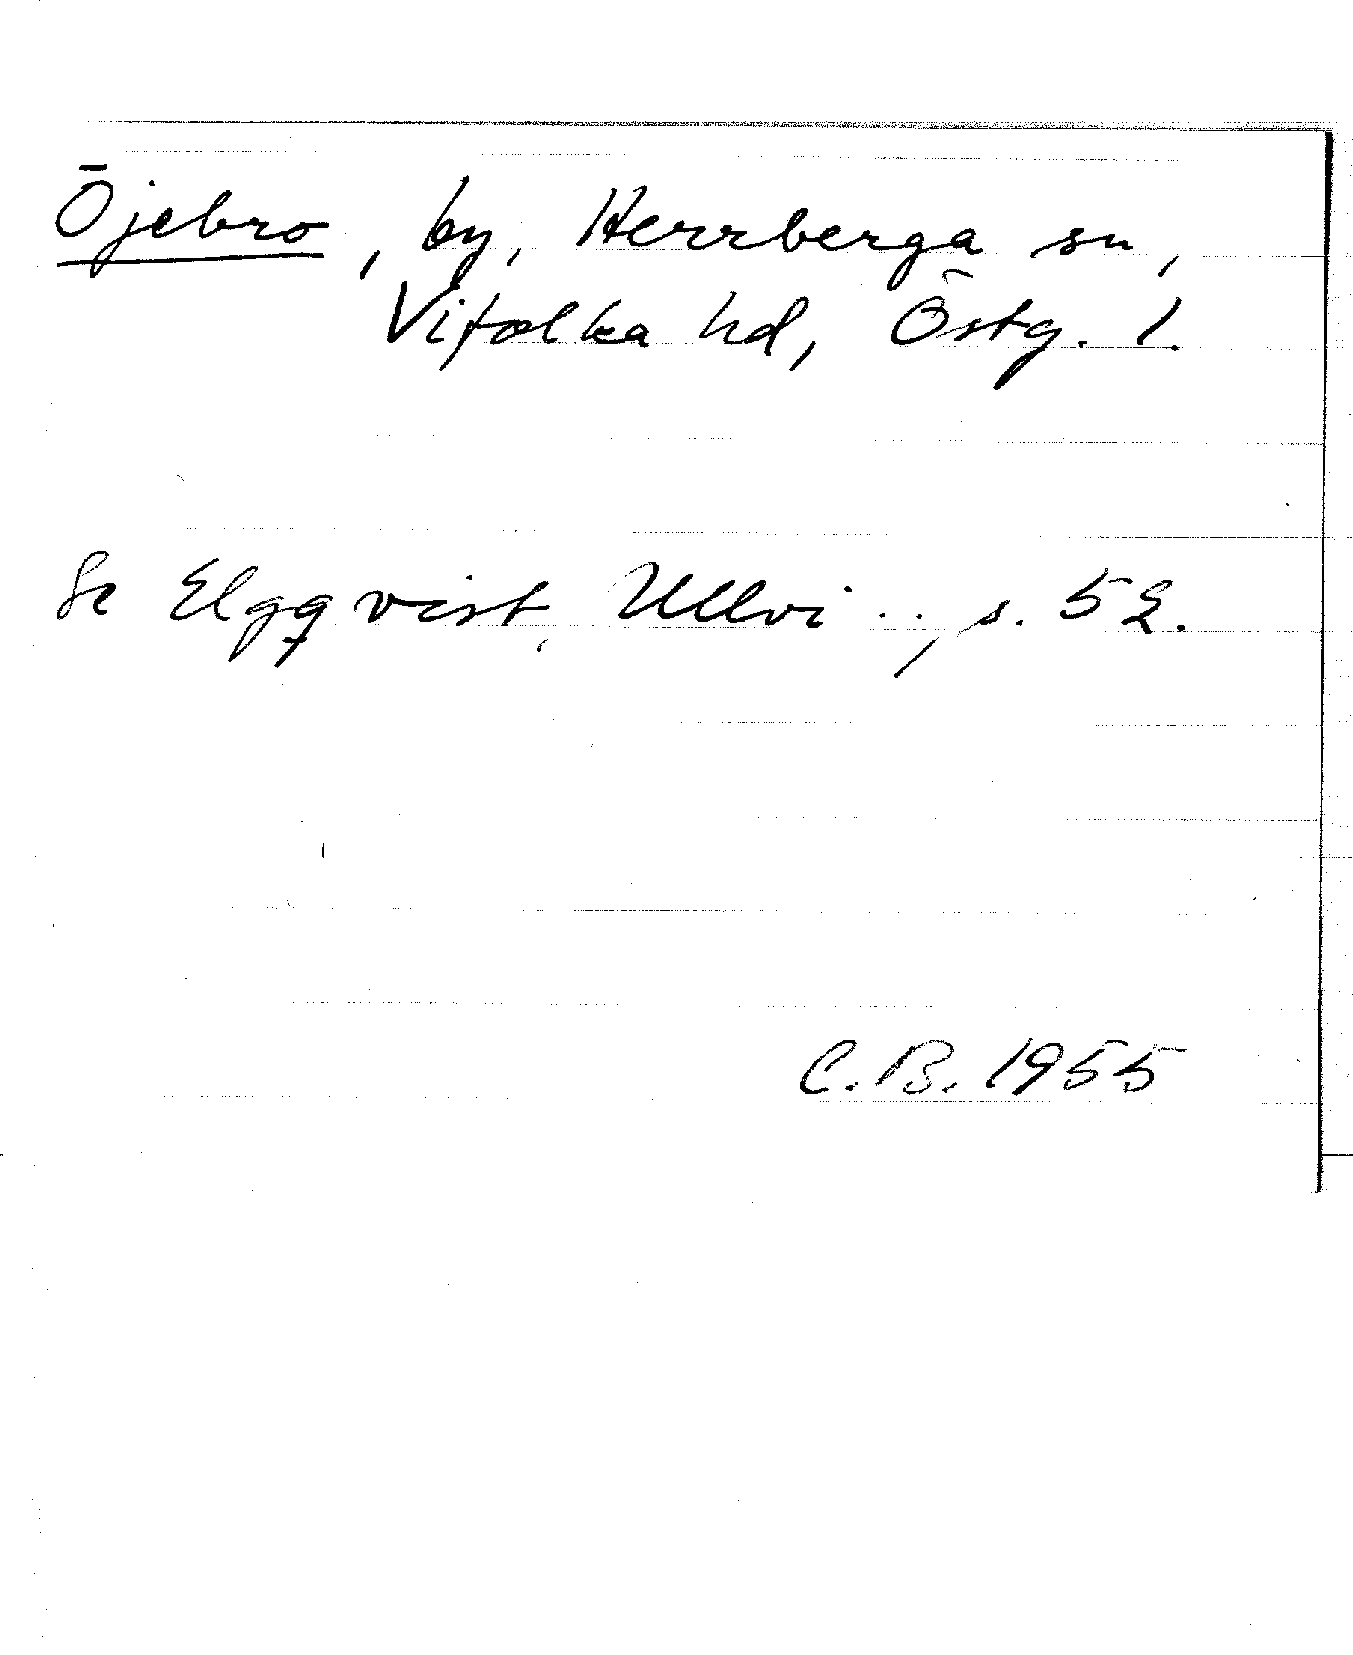 Öjebro, by, Herrberga sn,
Vifolka hd, Östg. l.
Se Elgqvist, Ullvi .., s. 52.
C.B. 1955